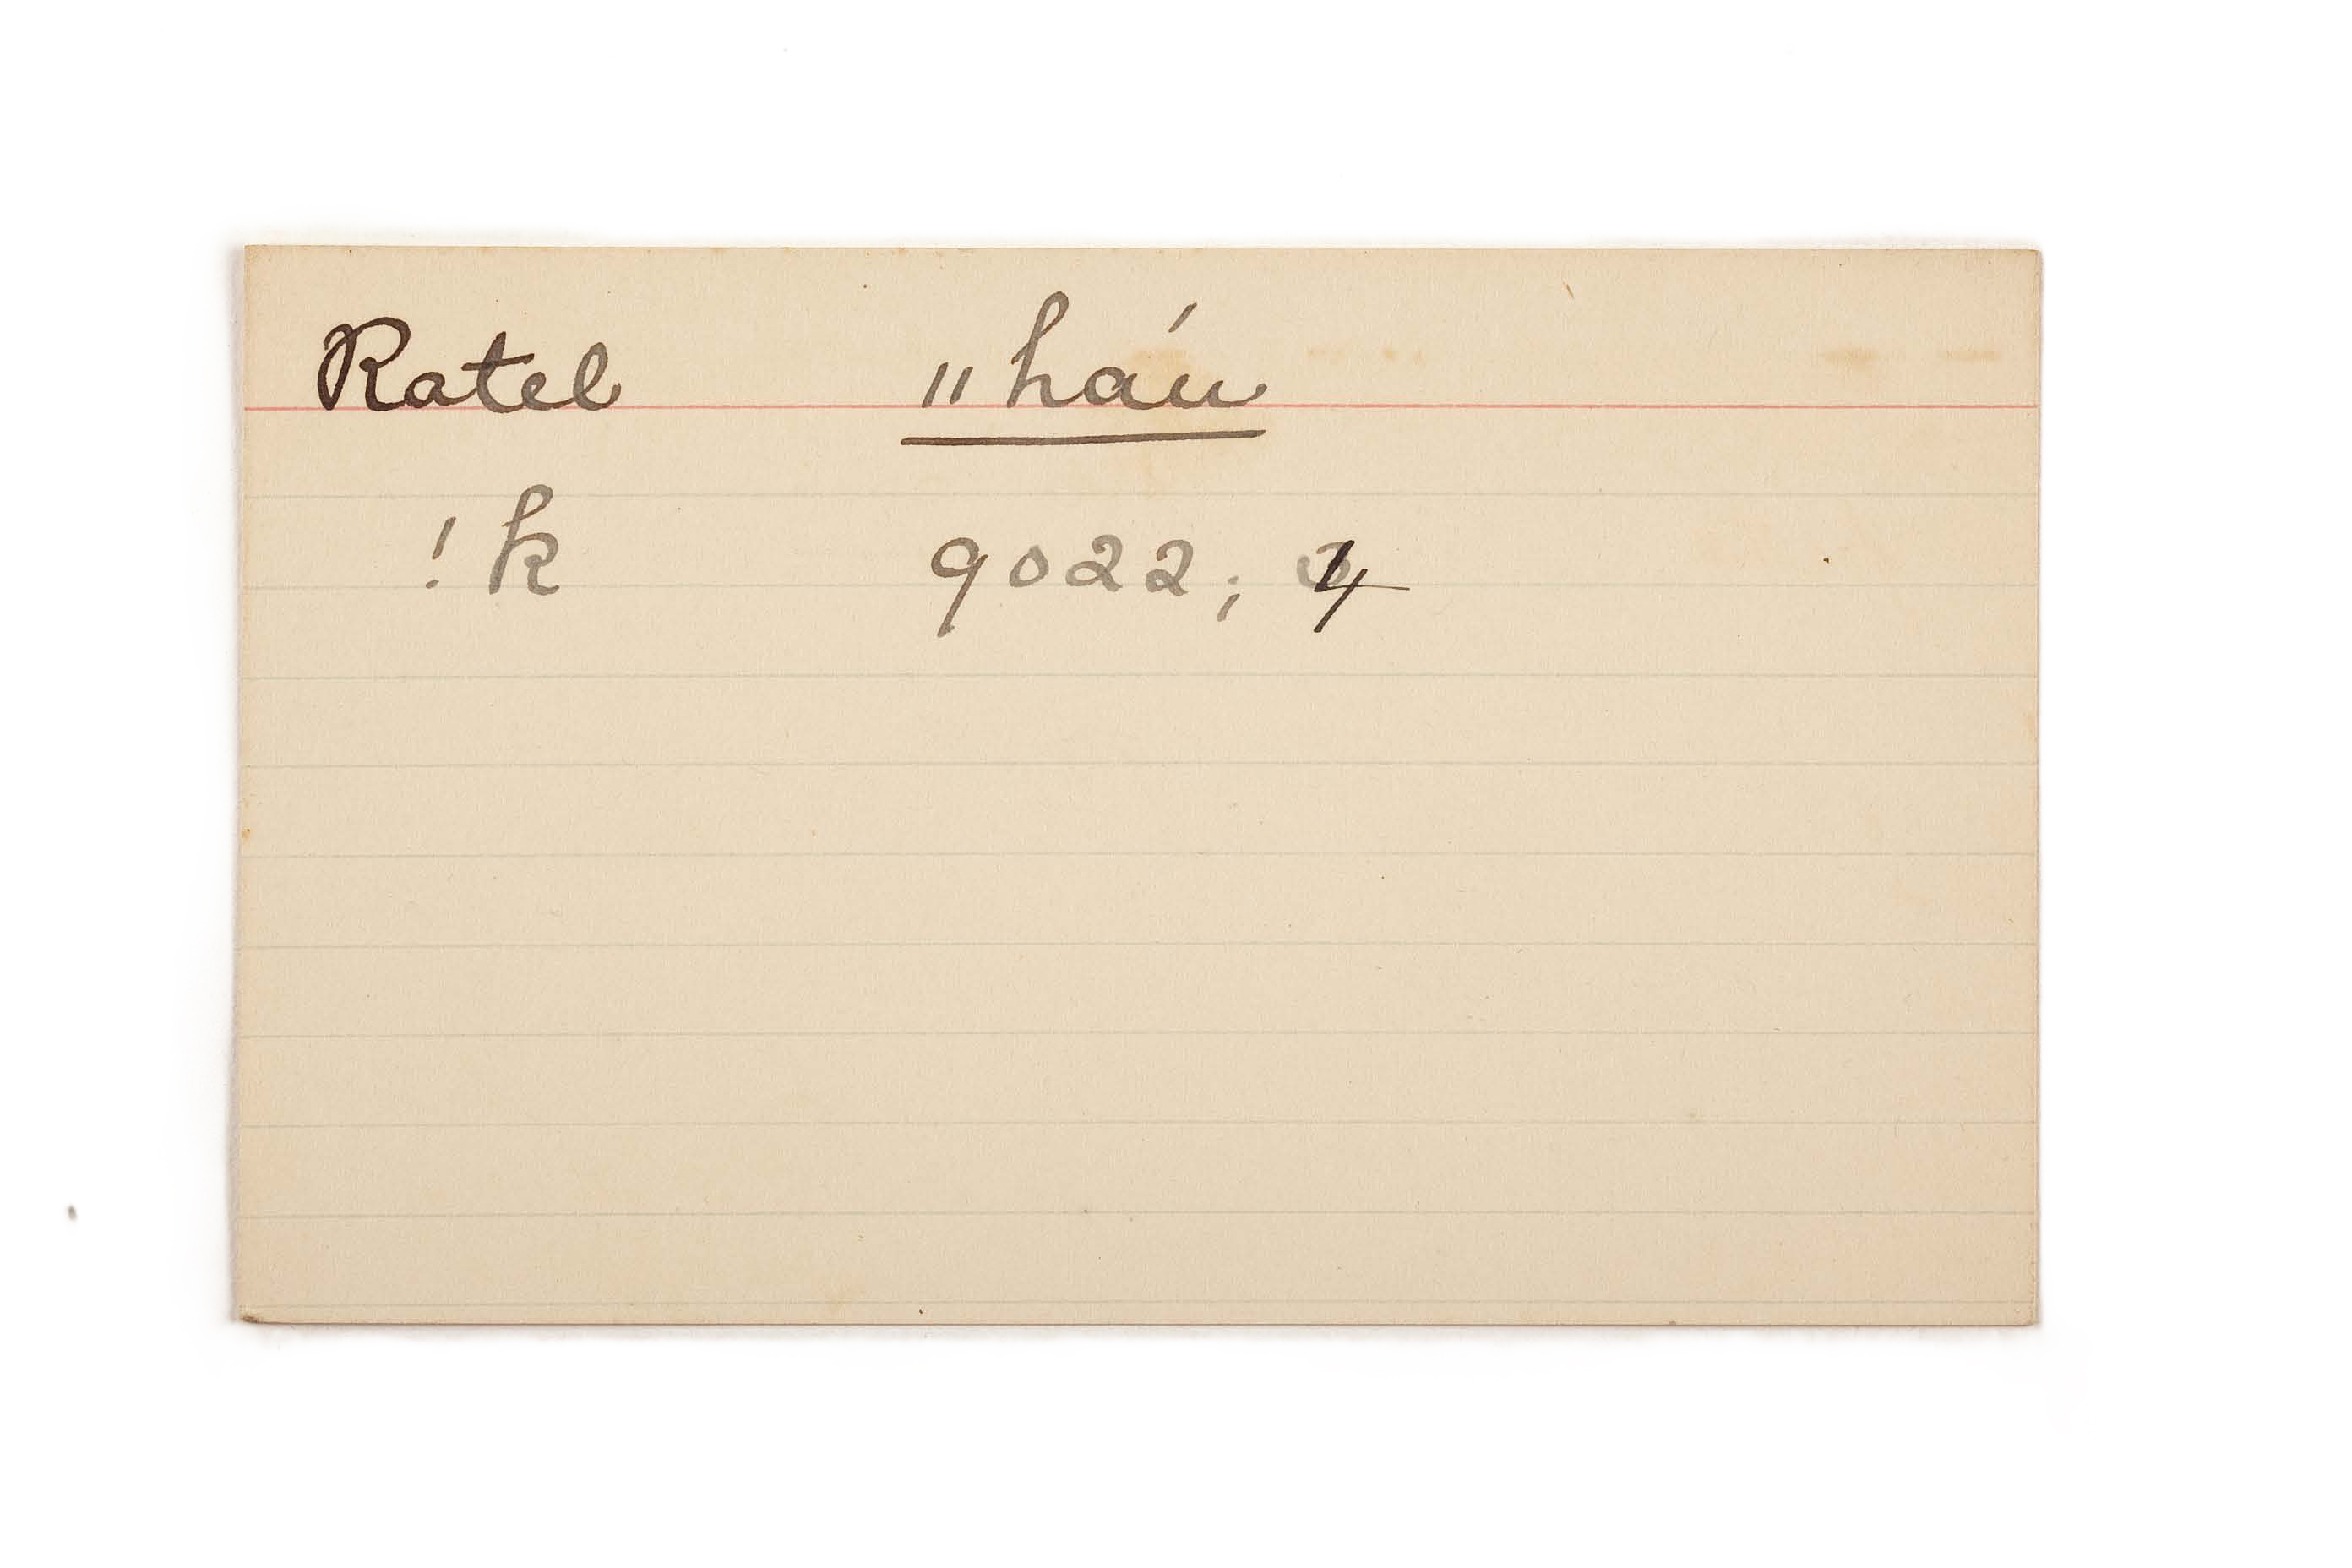 Ratel "háu
!k 9022; 4